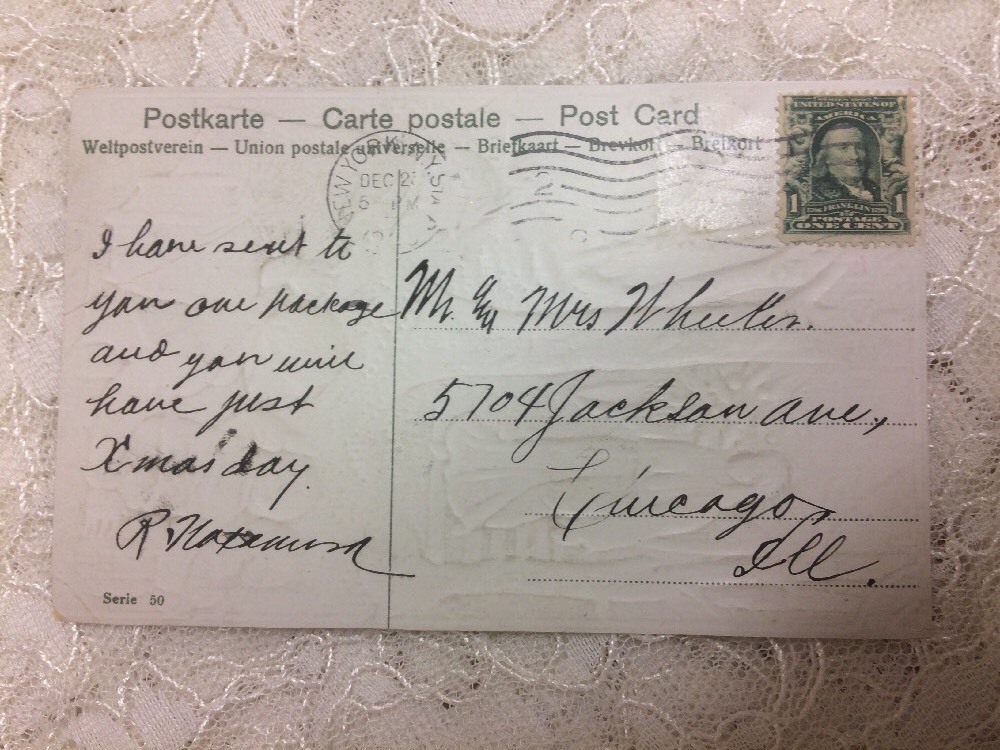 Postkarte — Carte postale — Post Card
Weltpostverein — Union postale universelle — Briefkaart — Brevkort — Brefkort
NEW YORK, N.Y.
DEC 2
5 PM
UNITED STATES OF
AMERICA
1 FRANKLIN 1
POSTAGE
ONE CENT
I have sent to
you one package
and you will
have just
Xmas day.
R.
Mr. & Mrs Wheeler.
5704 Jackson ave.,
Chicago
Ill.
Serie 50